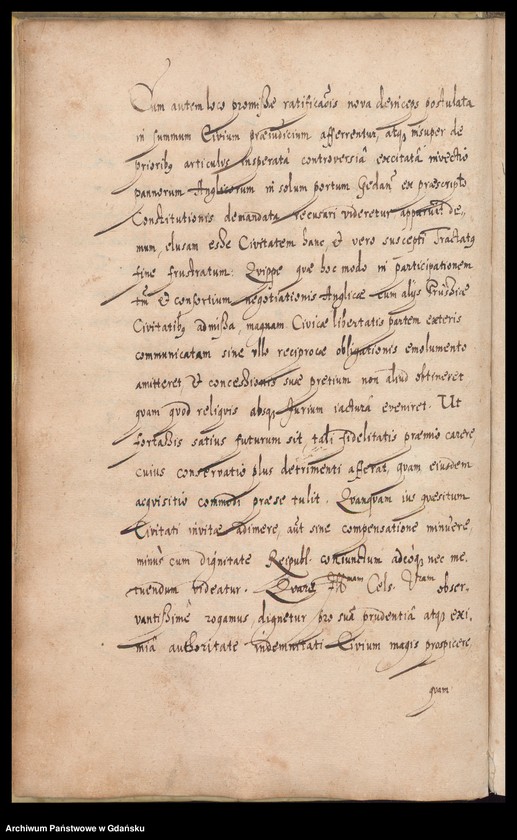 Cum autem loco promissae ratificaōis nova deinceps postulata
in summum Civium praeiudicium afferrentur, atq insuper de
prioribq articulis insperatâ controversiâ excitatâ invectio
pannorum Anglicorum in solum portum Gedan ex praescripto
Constitutionis demandata recusari videretur, apparuit de-
mum, elusam esse Civitatem hanc, & vero suscepti Tractatq
fine frustratum: Quippe quae hoc modo in participationem
tū & consortium negotiationis Anglicae cum alijs Prussiae
Civitatibq admissa, magnam Civicae libertatis partem exteris
communicatam sine ullo reciprocae obligationis emolumento
amitteret, & concessionis suae pretium non aliud obtineret
quam quod reliquis absq Iurium iacturâ eveniret. Ut
fortassis satius futurum sit tali fidelitatis praemio carere
cuius conservatio plus detrimenti afferat, quam eiusdem
acquisitio commodi prae se tulit. Quanquam ius quaesitum
Civitati invitae adimere, aut sine compensatione minuere,
minus cum dignitate Reipubl. coniunctum adeoq nec me-
tuendum videatur. Quare Illmam Cels. Vram obser-
vantissimè rogamus, dignetur pro suâ prudentiâ atq exi-
miâ authoritate indemnitati Civium magis prospicere,
quam
Archiwum Państwowe w Gdańsku